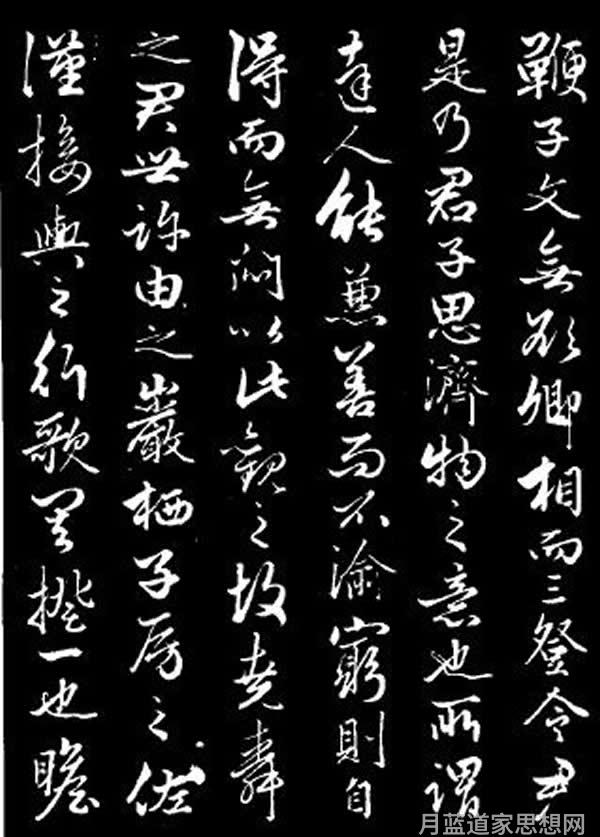 鞭子文無欲卿相而三登令尹
是乃君子思濟物之意也所謂
達人能兼善而不渝窮則自
得而無悶以此觀之故堯舜
之君世許由之巖栖子房之佐
漢接輿之行歌其揆一也瞻
月蓝道家思想网